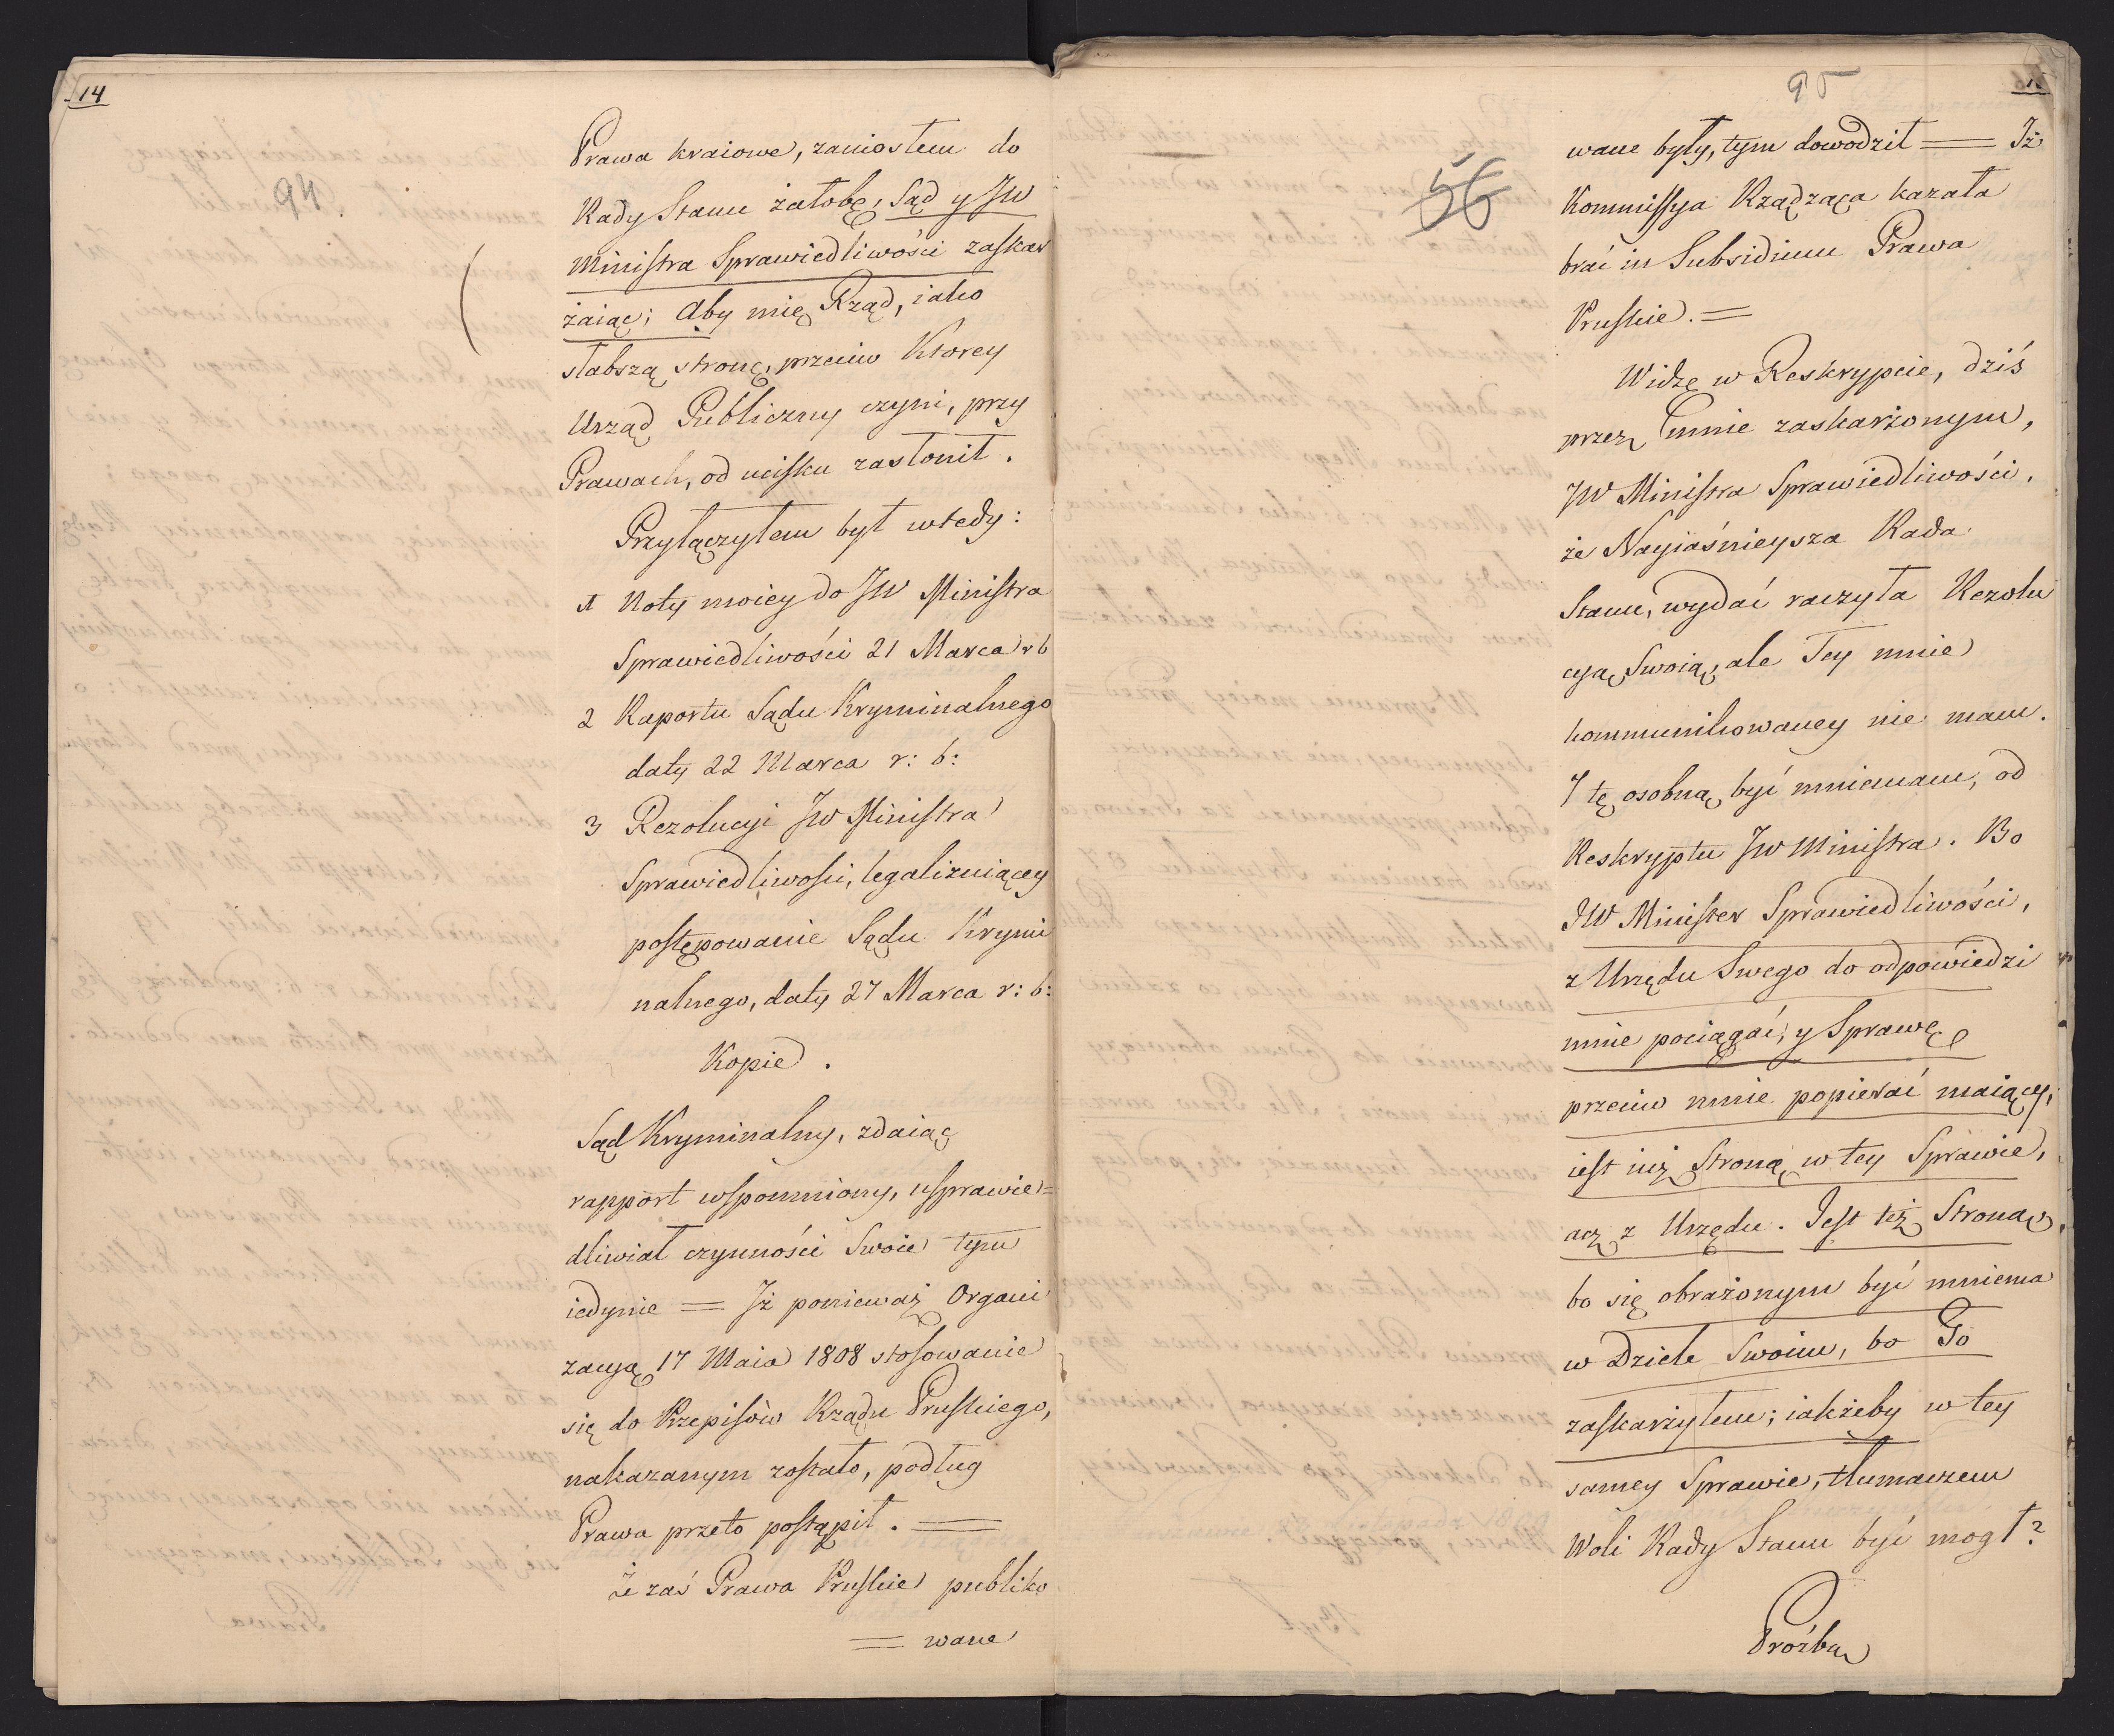 14
94.
Prawa kraiowe, zaniosłem do
Rady Stanu żałobę, Sąd y JW
Ministra Sprawiedliwości zaskar
żaiąc; Aby mię Rząd, iako
słabszą stronę, przeciw Ktorey
Urząd Publiczny czyni, przy
Prawach, od ucisku zasłonił.
Przyłączyłem był wtedy:
1 Noty moiey do JW Ministra
Sprawiedliwości 21 Marca r b
2 Raportu Sądu Kryminalnego
daty 22 Marca r: b:
3 Rezolucyi JW Ministra
Sprawiedliwości, legalizuiącey
postępowanie Sądu Krymi
nalnego, daty 27 Marca r: b:
Kopie.
Sąd Kryminalny, zdaiąc
rapport wspomniony, usprawie=
dliwiał czynności Swoie tym
iedynie = Iż ponieważ Organi
zacyą 17 Maia 1808 stosowanie
się do Przepisów Rządu Pruskiego,
nakazanym zostało, podług
Prawa przeto postąpił. =
Że zaś Prawa Pruskie publiko
= wane
95
15
56
wane były, tym dowodził = Iż
Kommissya Rządząca kazała
brać in Subsidium Prawa
Pruskie. =
Widzę w Reskrypcie, dziś
przez mnie zaskarżonym,
JW Ministra Sprawiedliwości,
że Nayiaśnieysza Rada
Stanu, wydać raczyła Rezolu
cyą Swoią, ale Tey mnie
kommunikowaney nie mam.
I tę osobną być mniemam, od
Reskryptu JW Ministra. Bo
JW Minister Sprawiedliwości,
z Urzędu Swego do odpowiedzi
mnie pociągać, y Sprawę
przeciw mnie popierać maiący,
iest iuż Stroną w tey Sprawie,
acz z Urzędu. Jest też Stroną,
bo się obrażonym być mniema
w Dziele Swoim, bo Go
zaskarżyłem; iakżeby w tey
samey Sprawie, tłumaczem
Woli Rady Stanu być mogł?
Proźba